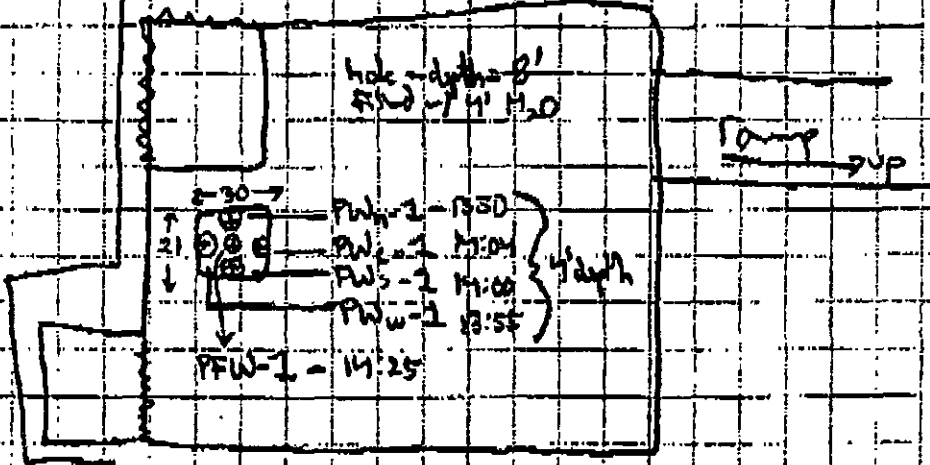 hole-depth= 8'
4' H2O
ramp
→ UP
← 30 →
21
PWN-1 - 1350
PWE-1 14:04
PWS-1 14:00
PWW-1 13:55
4' depth
PFW-1 - 14:25